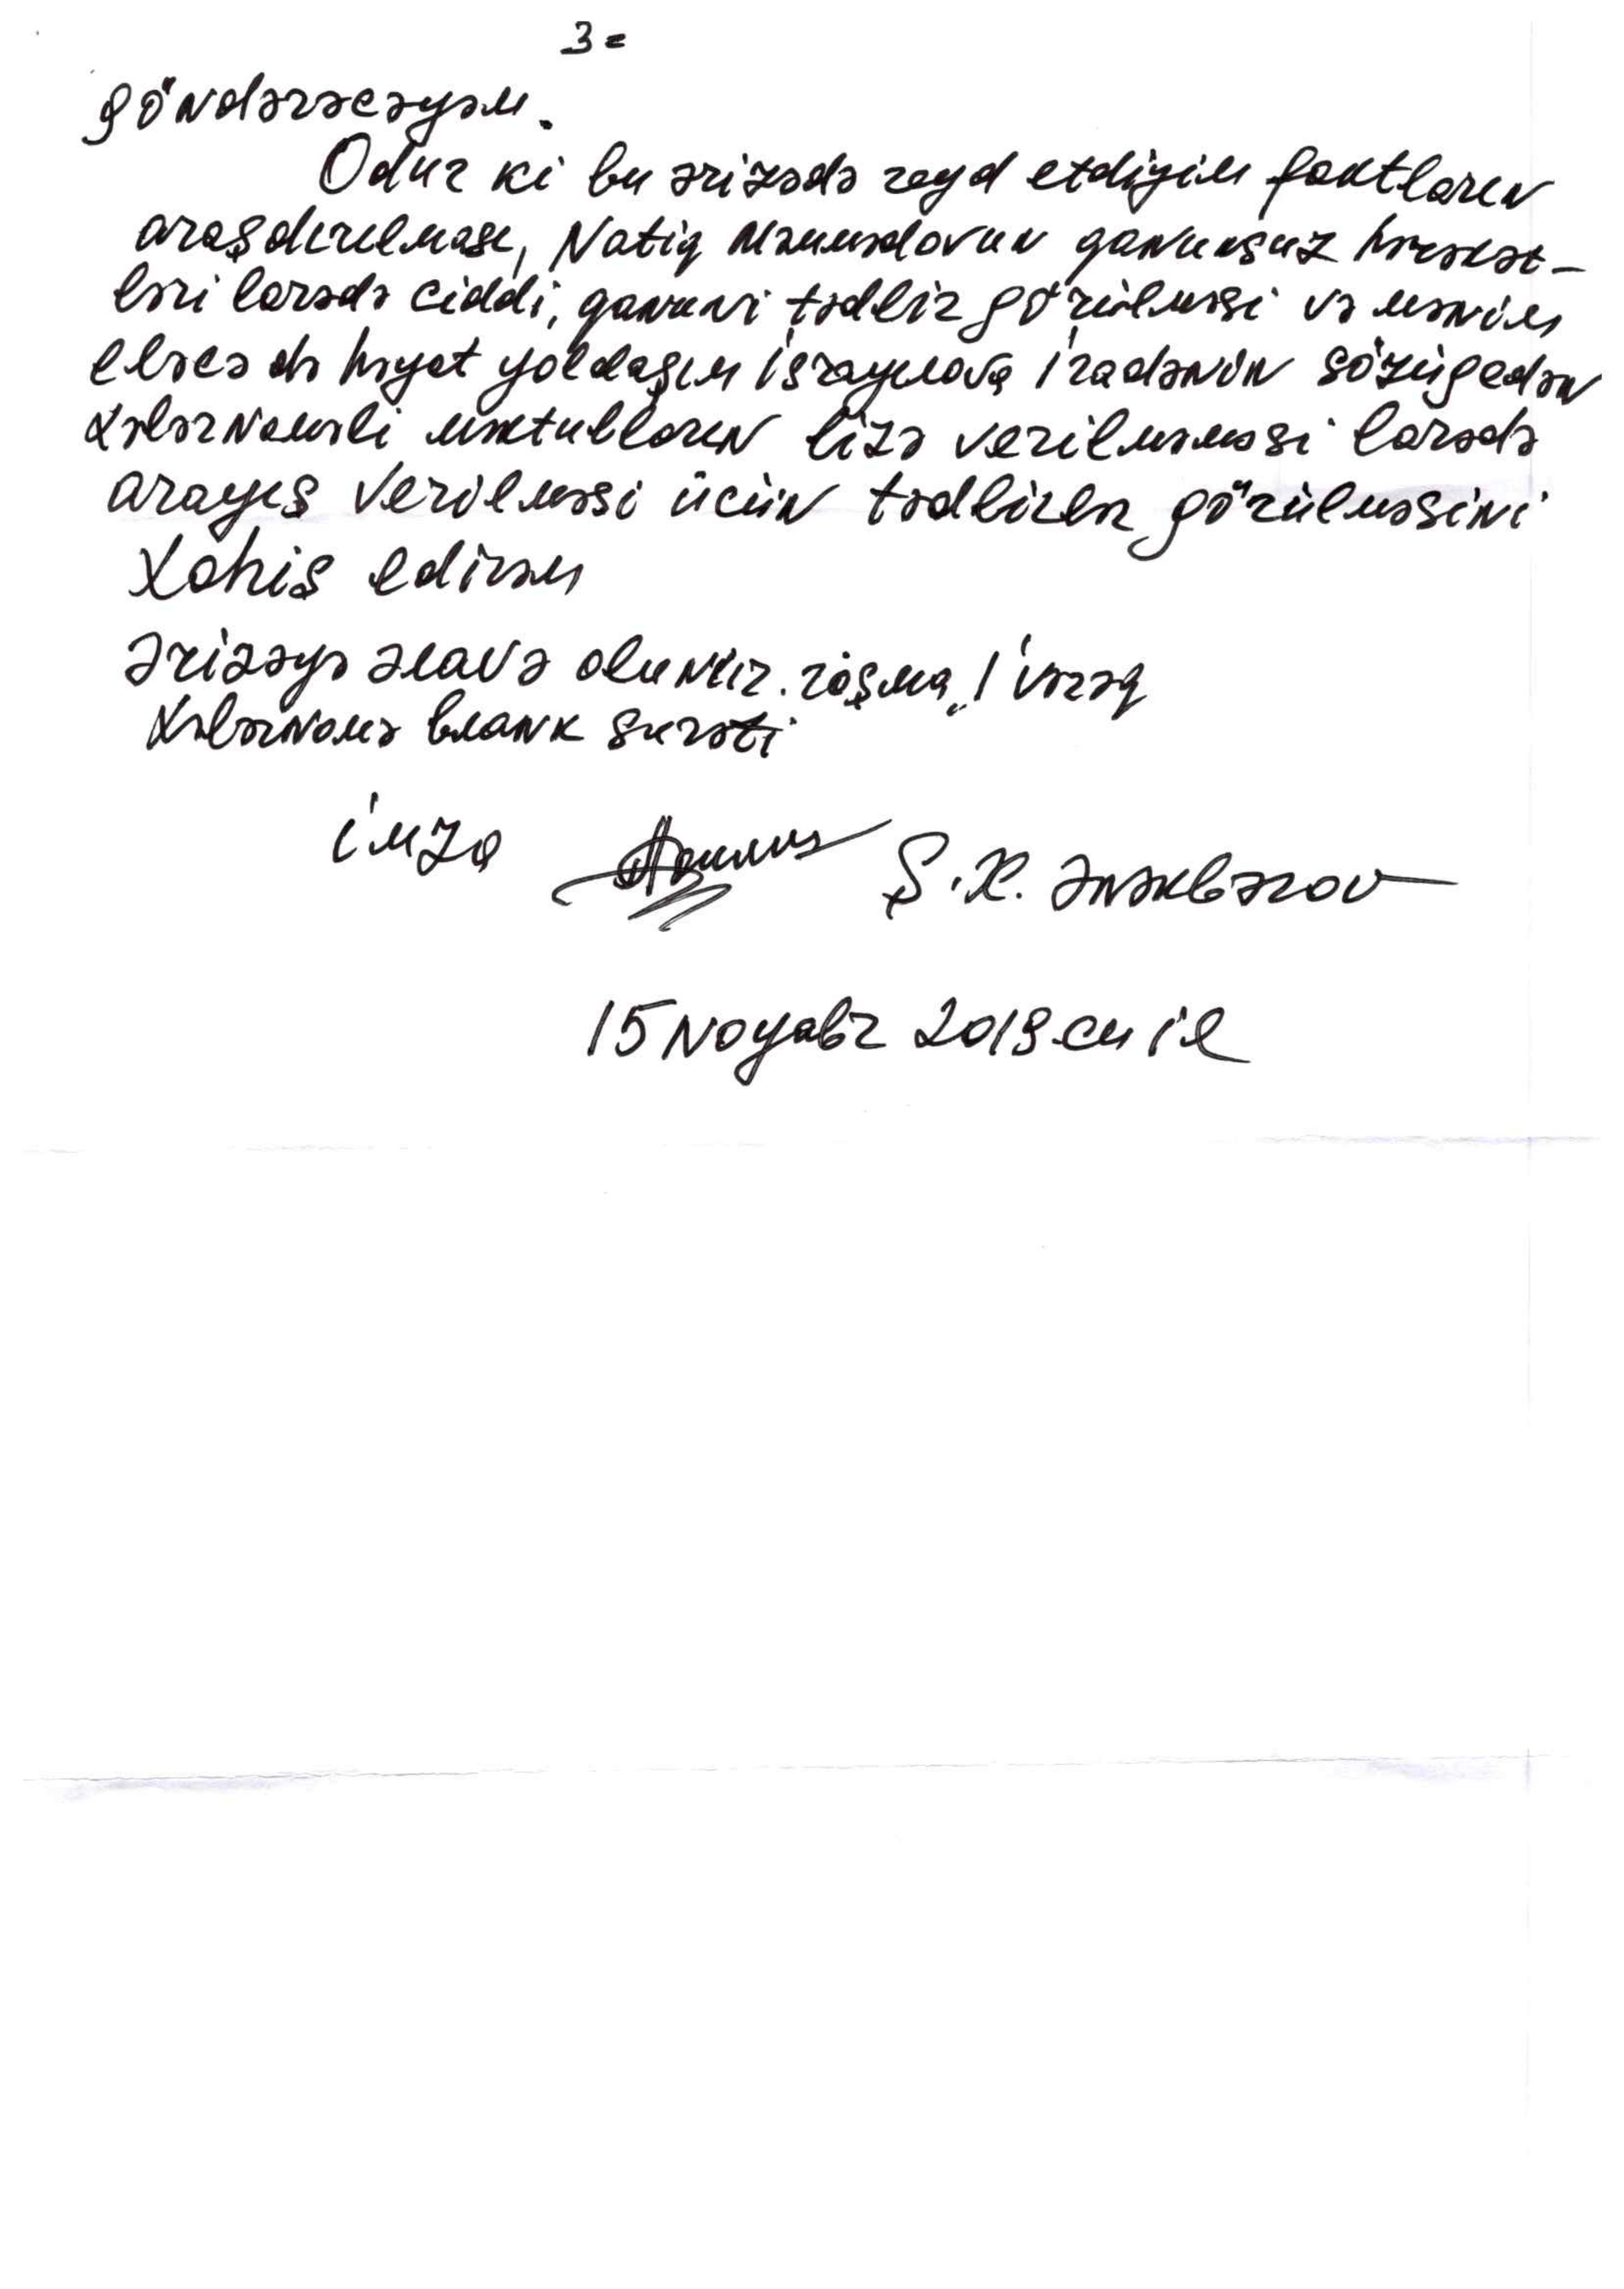 3=
göndərəcəyəm.
Odur ki bu ərizədə qeyd etdiyim faktların
araşdırılması, Natiq Məmmədovun qanunsuz hərəkət-
ləri barədə ciddi, qanuni tədbir görülməsi və mənim
eləcə də həyat yoldaşım İsrayılova İradənin sözügedən
xəbərnaməli məktubların bizə verilməməsi barədə
arayış verilməsi üçün tədbirlər görülməsini
xahiş edirəm
Ərizəyə əlavə olunur. 1 vərəq
xəbərnamə blank surəti
imza Ş.X. Ələkbərov
15 Noyabr 2019.cu il